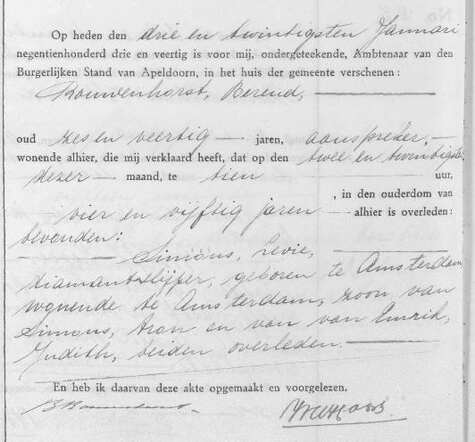 Op heden den drie en twintigsten Januari
negentienhonderd drie en veertig is voor mij, ondergeteekende, Ambtenaar van den
Burgerlijken Stand van Apeldoorn, in het huis der gemeente verschenen:
Rouwenhorst, Berend,
oud zes en veertig jaren, aanspreker,
wonende alhier, die mij verklaard heeft, dat op den twee en twintigsten
dezer maand, te tien uur,
, in den ouderdom van
vier en vijftig jaren alhier is overleden:
bevonden:
Simons, Levie,
diamantslijper, geboren te Amsterdam
wonende te Amsterdam, zoon van
Simons, Aron en van van Emrik,
Judith, beiden overleden.
En heb ik daarvan deze akte opgemaakt en voorgelezen.